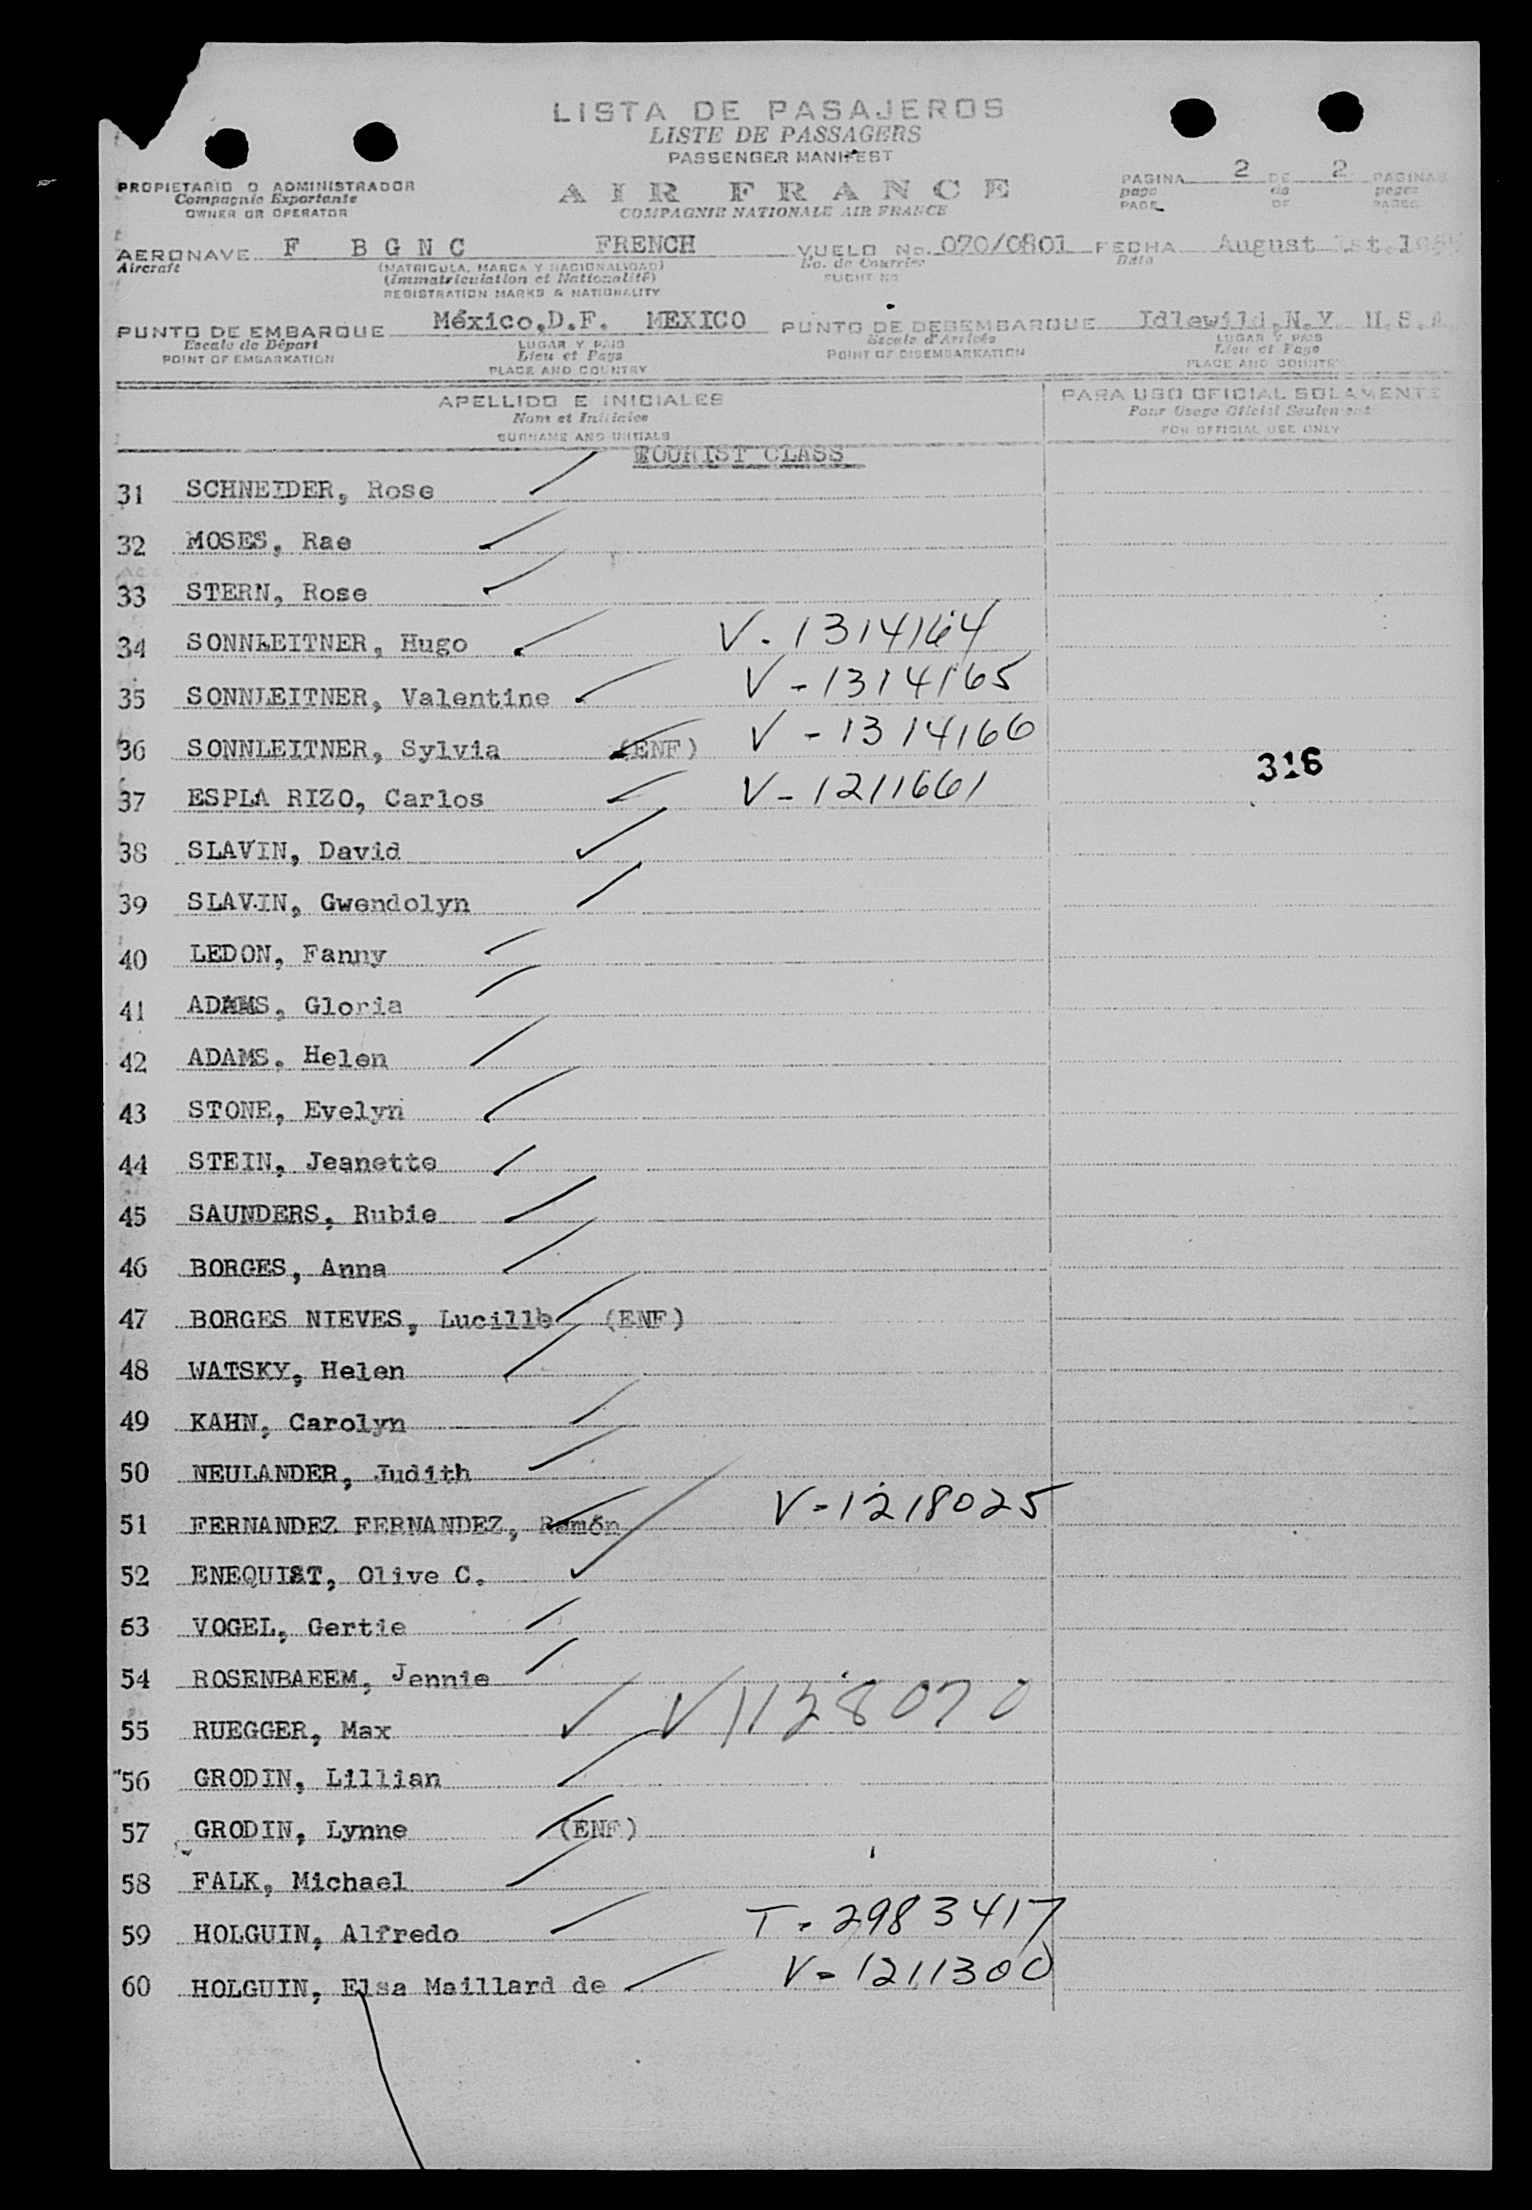 LISTA DE PASAJEROS
LISTE DE PASSAGERS
PASSENGER MANIFEST
PROPIETARIO O ADMINISTRADOR
Compagnie Exportante
OWNER OR OPERATOR
AIR FRANCE
COMPAGNIE NATIONALE AIR FRANCE
PAGINA 2 DE 2 PAGINAS
page de pages
PAGE OF PAGES
AERONAVE F BGNC FRENCH VUELO No. 070/0801 FECHA August 1st.
Aircraft (MATRICULA, MARCA Y NACIONALIDAD) No. de Courrier Date
(Immatriculation et Nationalité) FLIGHT No
REGISTRATION MARKS & NATIONALITY
PUNTO DE EMBARQUE México,D.F. MEXICO PUNTO DE DESEMBARQUE Idlewild,N.Y. U.S.A.
Escale de Départ LUGAR Y PAIS Escale d'Arrivée LUGAR Y PAIS
POINT OF EMBARKATION Lieu et Pays POINT OF DISEMBARKATION Lieu et Pays
PLACE AND COUNTRY PLACE AND COUNTRY
APELLIDO E INICIALES PARA USO OFICIAL SOLAMENTE
Nom et Initiales Pour Usage Officiel Seulement
SURNAME AND INITIALS FOR OFFICIAL USE ONLY
TOURIST CLASS
31 SCHNEIDER, Rose
32 MOSES, Rae
33 STERN, Rose
34 SONNLEITNER, Hugo V-1314164
35 SONNLEITNER, Valentine V-1314165
36 SONNLEITNER, Sylvia (ENF) V-1314166
316
37 ESPLA RIZO, Carlos V-1211661
38 SLAVIN, David
39 SLAVIN, Gwendolyn
40 LEDON, Fanny
41 ADAMS, Gloria
42 ADAMS, Helen
43 STONE, Evelyn
44 STEIN, Jeanette
45 SAUNDERS, Rubie
46 BORGES, Anna
47 BORGES NIEVES, Lucille (ENF)
48 WATSKY, Helen
49 KAHN, Carolyn
50 NEULANDER, Judith
51 FERNANDEZ FERNANDEZ, Ramón V-1218025
52 ENEQUIST, Olive C.
53 VOGEL, Gertie
54 ROSENBAEEM, Jennie
55 RUEGGER, Max V1128070
56 GRODIN, Lillian
57 GRODIN, Lynne (ENF)
58 FALK, Michael
59 HOLGUIN, Alfredo T-2983417
60 HOLGUIN, Elsa Maillard de V-1211300